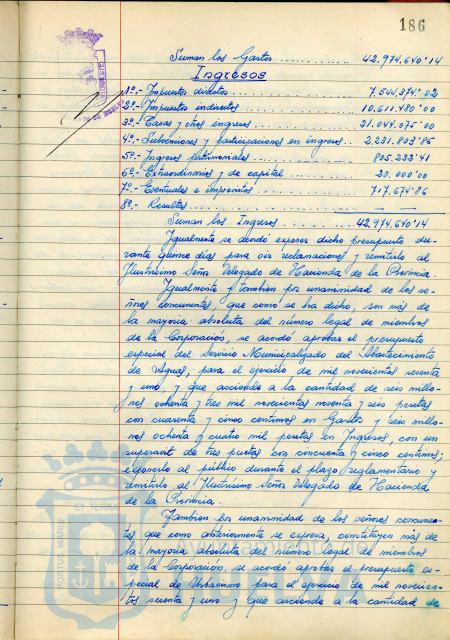 186
Suman los Gastos ......... 42.974.640'14
Ingresos
1º.- Impuestos directos ......... 7.544.374'02
2º.- Impuestos indirectos ......... 10.611.480'00
3º.- Tasas y otros ingresos ......... 21.044.075'00
4º.- Subvenciones y participaciones en ingresos .. 2.231.803'85
5º.- Ingresos patrimoniales ......... 805.233'41
6º.- Extraordinarios y de capital ......... 20.000'00
7º.- Eventuales e imprevistos ......... 717.674'86
8º.- Resultas ......... 
Suman los Ingresos ......... 42.974.640'14
Igualmente se acordó exponer dicho presupuesto du-
rante quince días para oir reclamaciones y remitirlo al
Ilustrísimo Señor Delegado de Hacienda de la Provincia.
Igualmente y tambien por unanimidad de los se-
ñores concurrentes, que como se ha dicho, son más de
la mayoría absoluta del número legal de miembros
de la Corporación, se acordó aprobar el presupuesto
especial del Servicio Municipalizado del Abastecimiento
de Aguas, para el ejercicio de mil novecientos sesenta
y uno y que asciende a la cantidad de seis millo-
nes ochenta y tres mil novecientas noventa y seis pesetas
con cuarenta y cinco centimos en Gastos y seis millo-
nes ochenta y cuatro mil pesetas en Ingresos, con un
superavit de tres pesetas con cincuenta y cinco centimos;
exponerlo al público durante el plazo reglamentario y
remitirlo al Ilustrísimo Señor Delegado de Hacienda
de la Provincia.
Tambien por unanimidad de los señores concurren-
tes que como anteriormente se expresa, constituyen más de
la mayoría absoluta del número legal de miembros
de la Corporación, se acordó aprobar el presupuesto es-
pecial de Urbanismo para el ejercicio de mil novecien-
tos sesenta y uno y que asciende a la cantidad de